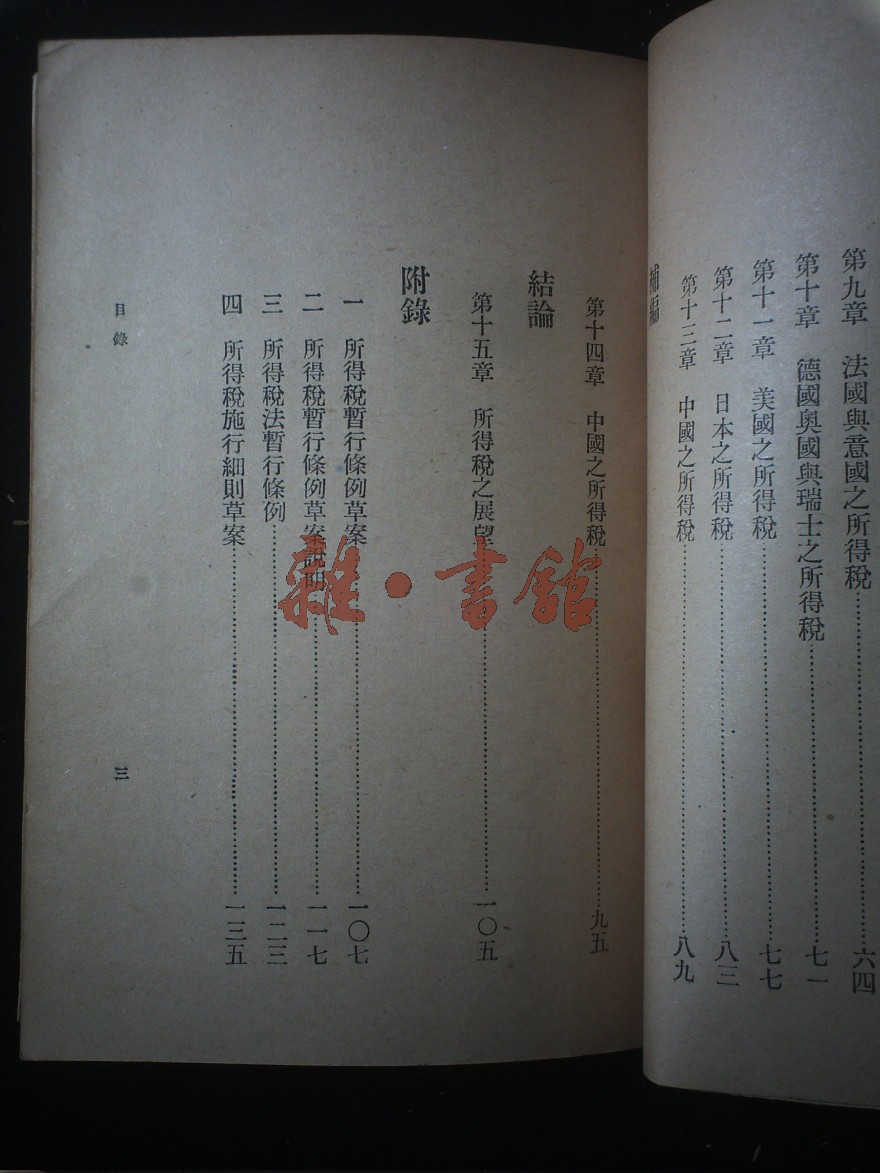 第九章　法國與意國之所得稅……六四
第十章　德國奧國與瑞士之所得稅……七一
第十一章　美國之所得稅……七七
第十二章　日本之所得稅……八三
第十三章　中國之所得稅……八九
補編
第十四章　中國之所得稅……九五
結論
第十五章　所得稅之展望……一〇五
附錄
一　所得稅暫行條例草案……一〇七
二　所得稅暫行條例草案說明……一一七
三　所得稅法暫行條例……一二三
四　所得稅施行細則草案……一三五
目錄
三
雜·書館